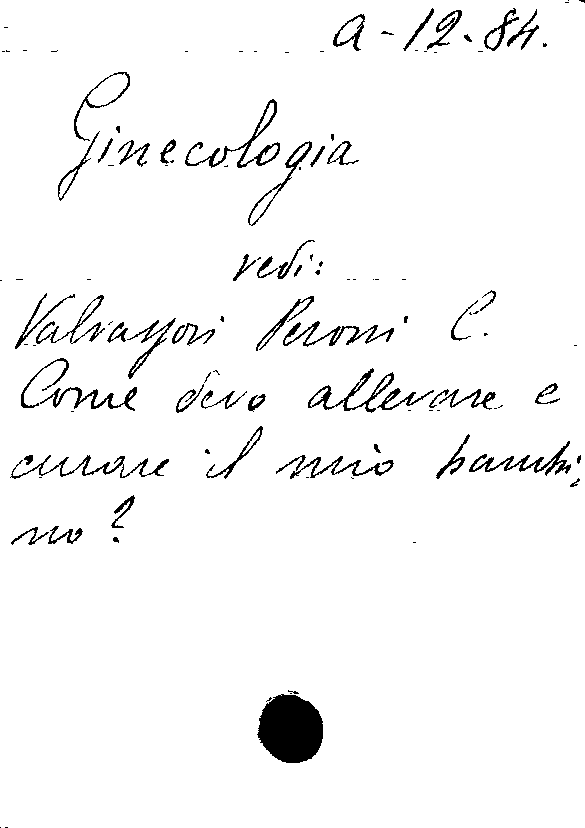 a-12-84.
Ginecologia
vedi:
Valvassori Peroni C.
Come devo allevare e
curare il mio bambi-
no?